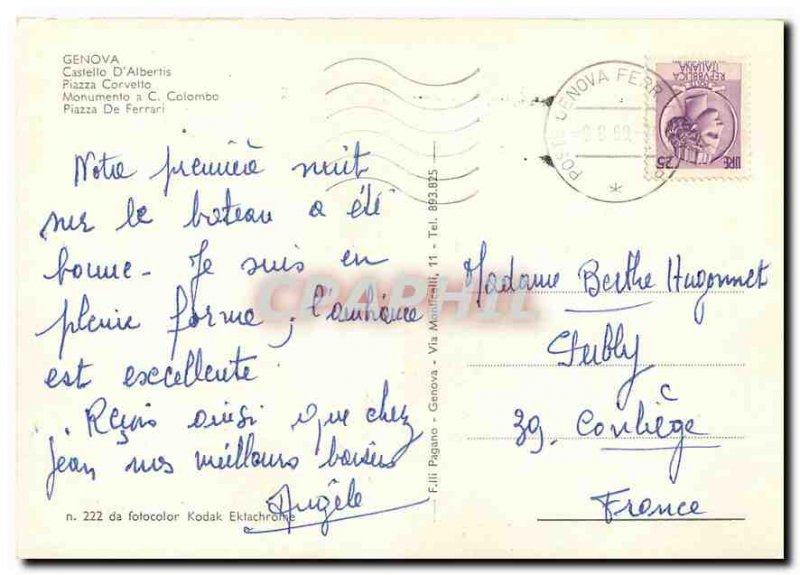 GENOVA
Castello D'Albertis
Piazza Corvetto
Monumento a C. Colombo
Piazza De Ferrari
Notre première nuit
sur le bateau a été
bonne - Je suis en
pleine forme, l'ambiance
est excellente.
Reçois ainsi que chez
Jean nos meilleurs baisers
Angèle
n. 222 da fotocolor Kodak Ektachrome
F.lli Pagano - Genova - Via Monticelli, 11 - Tel. 893.825
POSTE GENOVA FERR
REPVBBLICA
ITALIANA
LIRE 25
Madame Berthe Hugonnet
39. Conliège
France
CPAPHIL